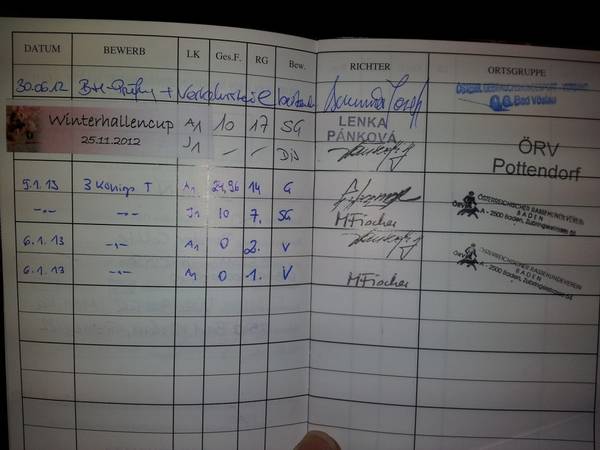 DATUM BEWERB LK Ges.F. RG Bew. RICHTER ORTSGRUPPE
30.06.12 BH-Prüfung + Verkehrsteil bestanden
Bad Vöslau
Winterhallencup A1 10 17 SG LENKA
25.11.2012 J1 - - Dis PÁNKOVÁ
ÖRV
Pottendorf
5.1.13 3 Königs T A1 24,96 14 G
-"- -"- J1 10 7. SG MFischer
ÖSTERREICHISCHER RASSEHUNDEVEREIN
BADEN
A - 2500 Baden,
6.1.13 -"- A1 0 2. V
6.1.13 -"- 0 1. V MFischer
ÖSTERREICHISCHER RASSEHUNDEVEREIN
BADEN
A - 2500 Baden,